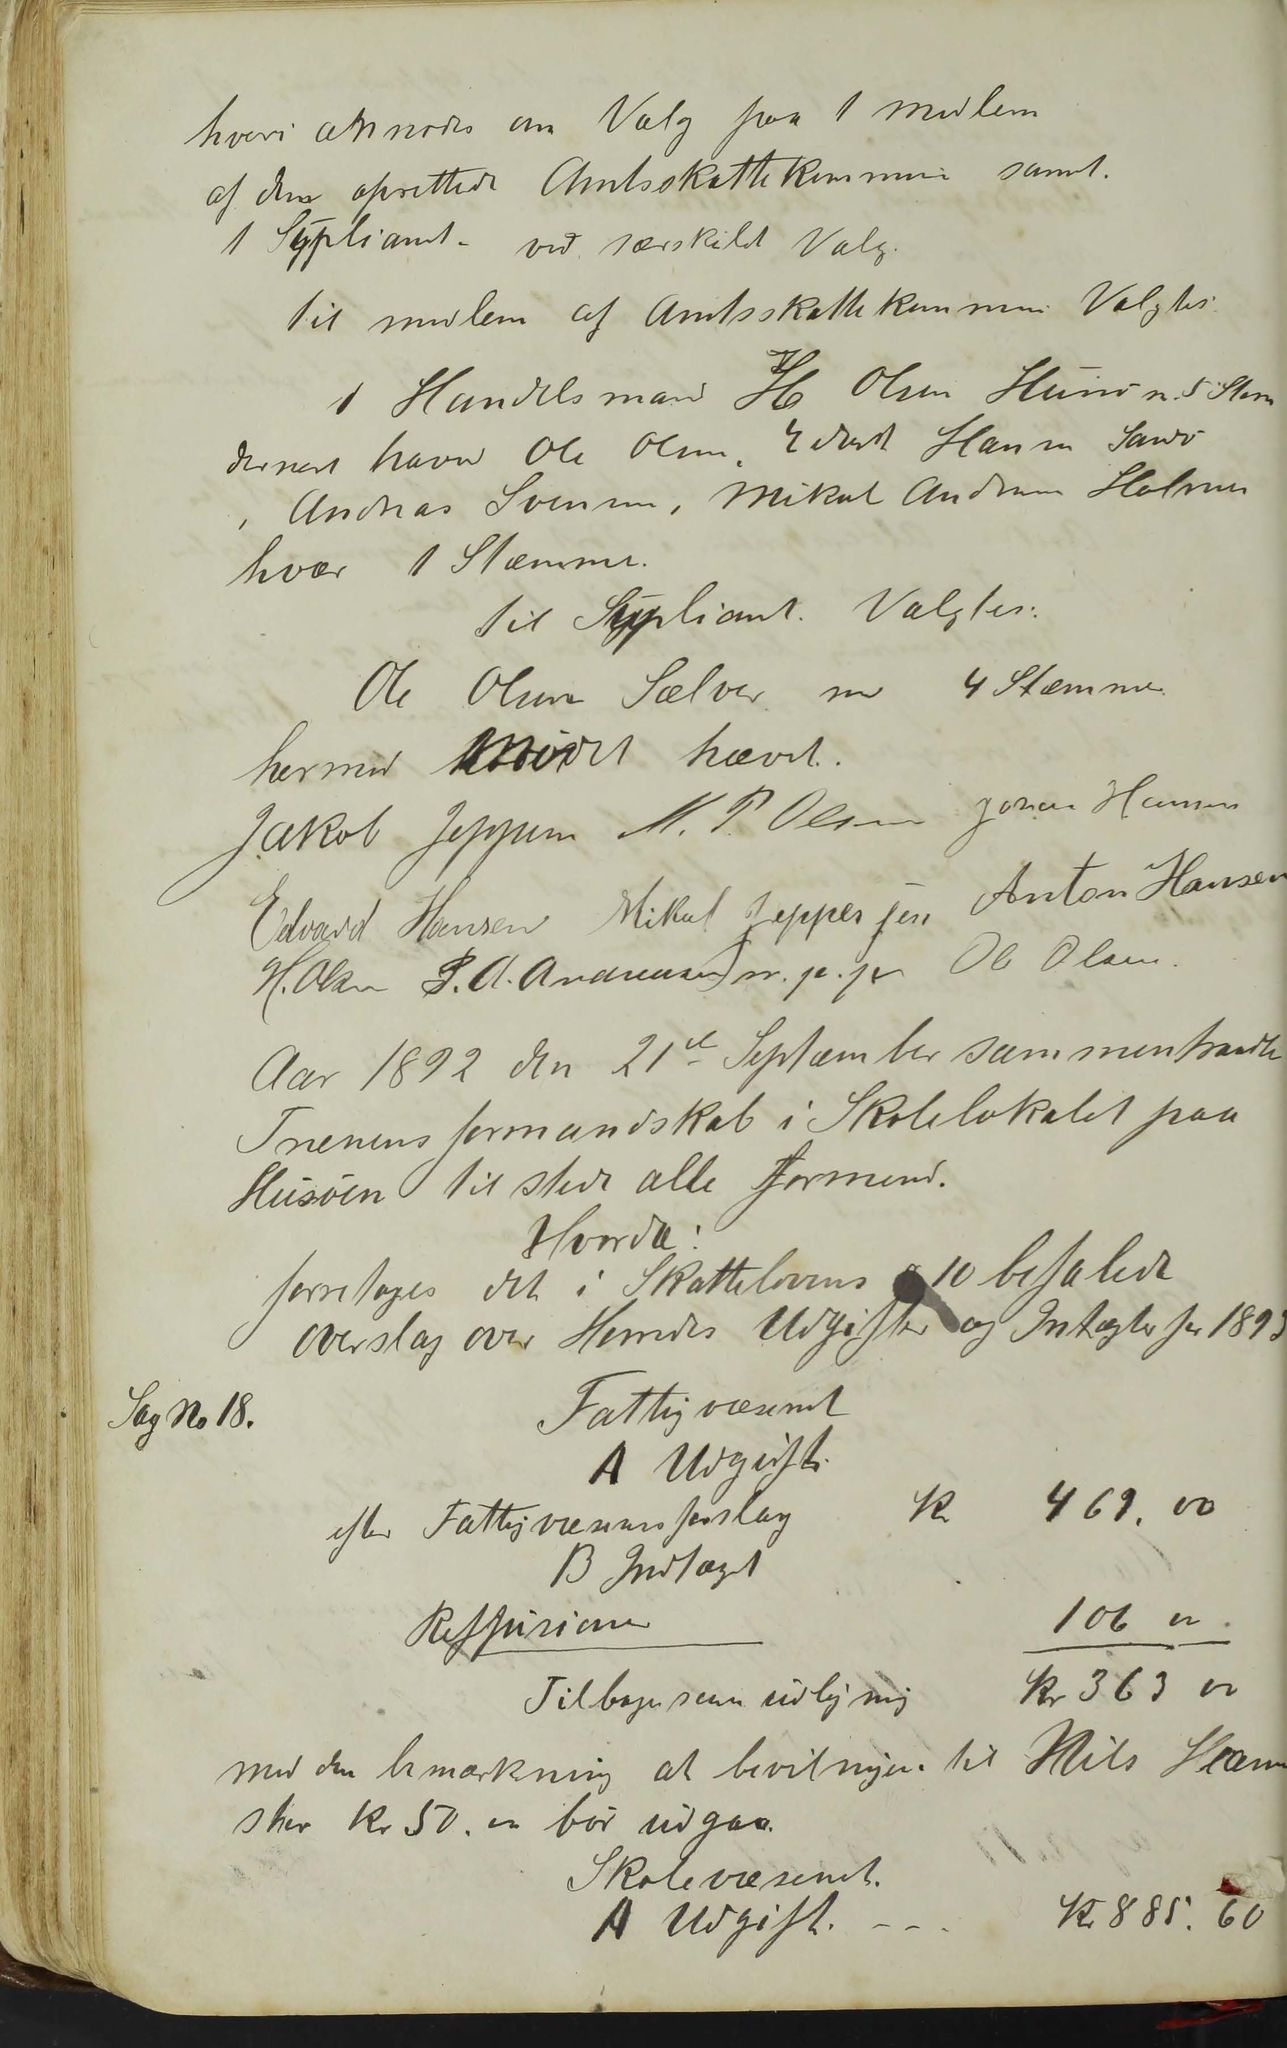 hvori anmodes om Valg paa 1 medlem
af den oprettede Amtsskattekommni samt.
1 Sypliant - ved særskildt Valg.
til medlem af Amtsskattekommni Valgtes.
1 Handelsmand H Olsen Husø m. 5 Stem
dernest havde Ole Olsen, Edvard Hansen Sandø
, Andreas Svensen, Mikal Andreasen Holmen
hvær 1 Stæmme.
til Sypliant. Valgtes:
Ole Olsen Sælvær me 4 Stæmmer
hermed Mødet hævet.
Jakob Jeppesen M. P. Olsen Johan Hansen
Edvard Hansen Mikal Jeppesen Anton Hansen
H. Olsen P. A. Andreassen m. p. p. Ole Olsen.
Aar 1892 den 21de September sammentraadte
Trænens formandskab i Skolelokalet paa
Husøen til stede alle formend.
Hvorda:
forretoges det i Skattelovens § 10 befalede
overslag over Herredes Udgifter og Intægter for 1893
Sag No 18.
Fattigvæsenet
A Udgift.
efter Fattigvæsensforslag Kr 469.00
B Indtægt
Reffusioner 106 00
Tilbage som udligning Kr 363 00
med den bemærkning at bevilnijen til Nils
Kr 50.00 bør udgaa.
Skolevæsenet.
A Udgift. - - - Kr 885.60